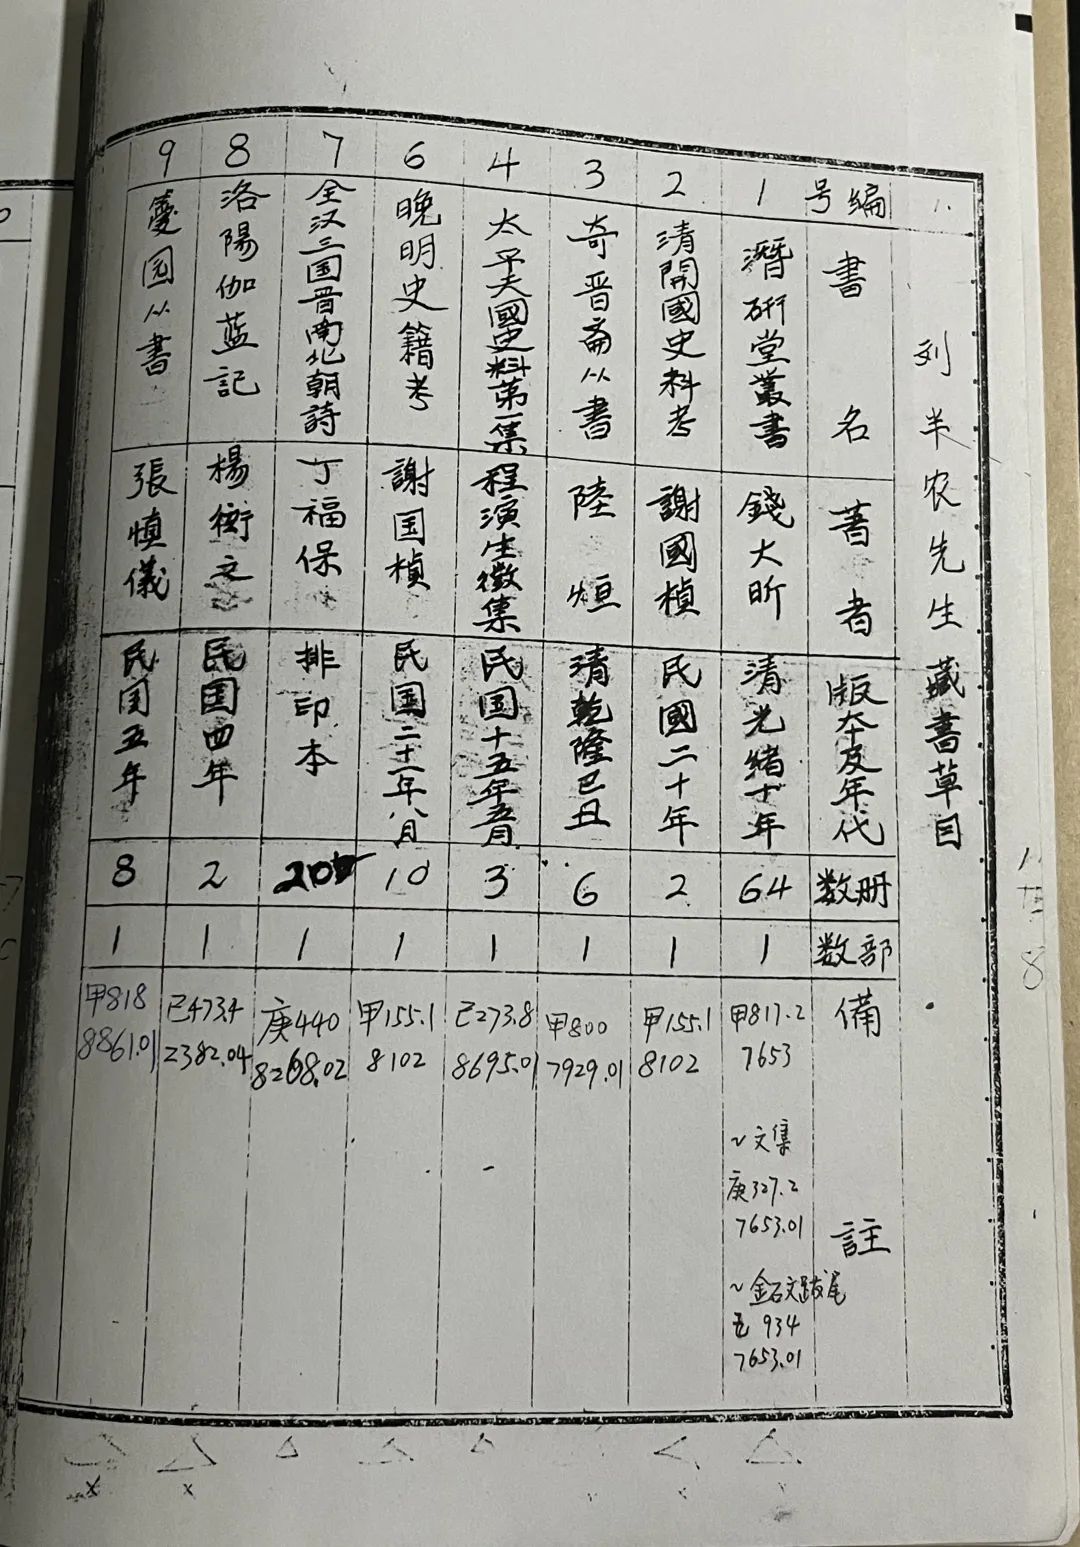 刘半农先生藏書草目
編号
書名
著者
版本及年代
册数
部数
備註
1
潛研堂叢書
錢大昕
清光緒十年
64
1
甲817.2
7653
~文集
庚327.2
7653.01
~金石文跋尾
934
7653.01
2
清開國史料考
謝國楨
民國二十年
2
1
甲155.1
8102
3
奇晋斎丛書
陸烜
清乾隆己丑
6
1
甲800
7929.01
4
太平天國史料第一集
程演生徵集
民国十五年五月
3
1
己273.8
8695.01
6
晚明史籍考
謝国楨
民国二十一年八月
10
1
甲155.1
8102
7
全汉三国晋南北朝詩
丁福保
排印本
20
1
庚440
8268.02
8
洛陽伽蓝記
楊衒之
民国四年
2
1
己473.4
2382.04
9
园丛書
張慎儀
民国五年
8
1
甲818
8861.01